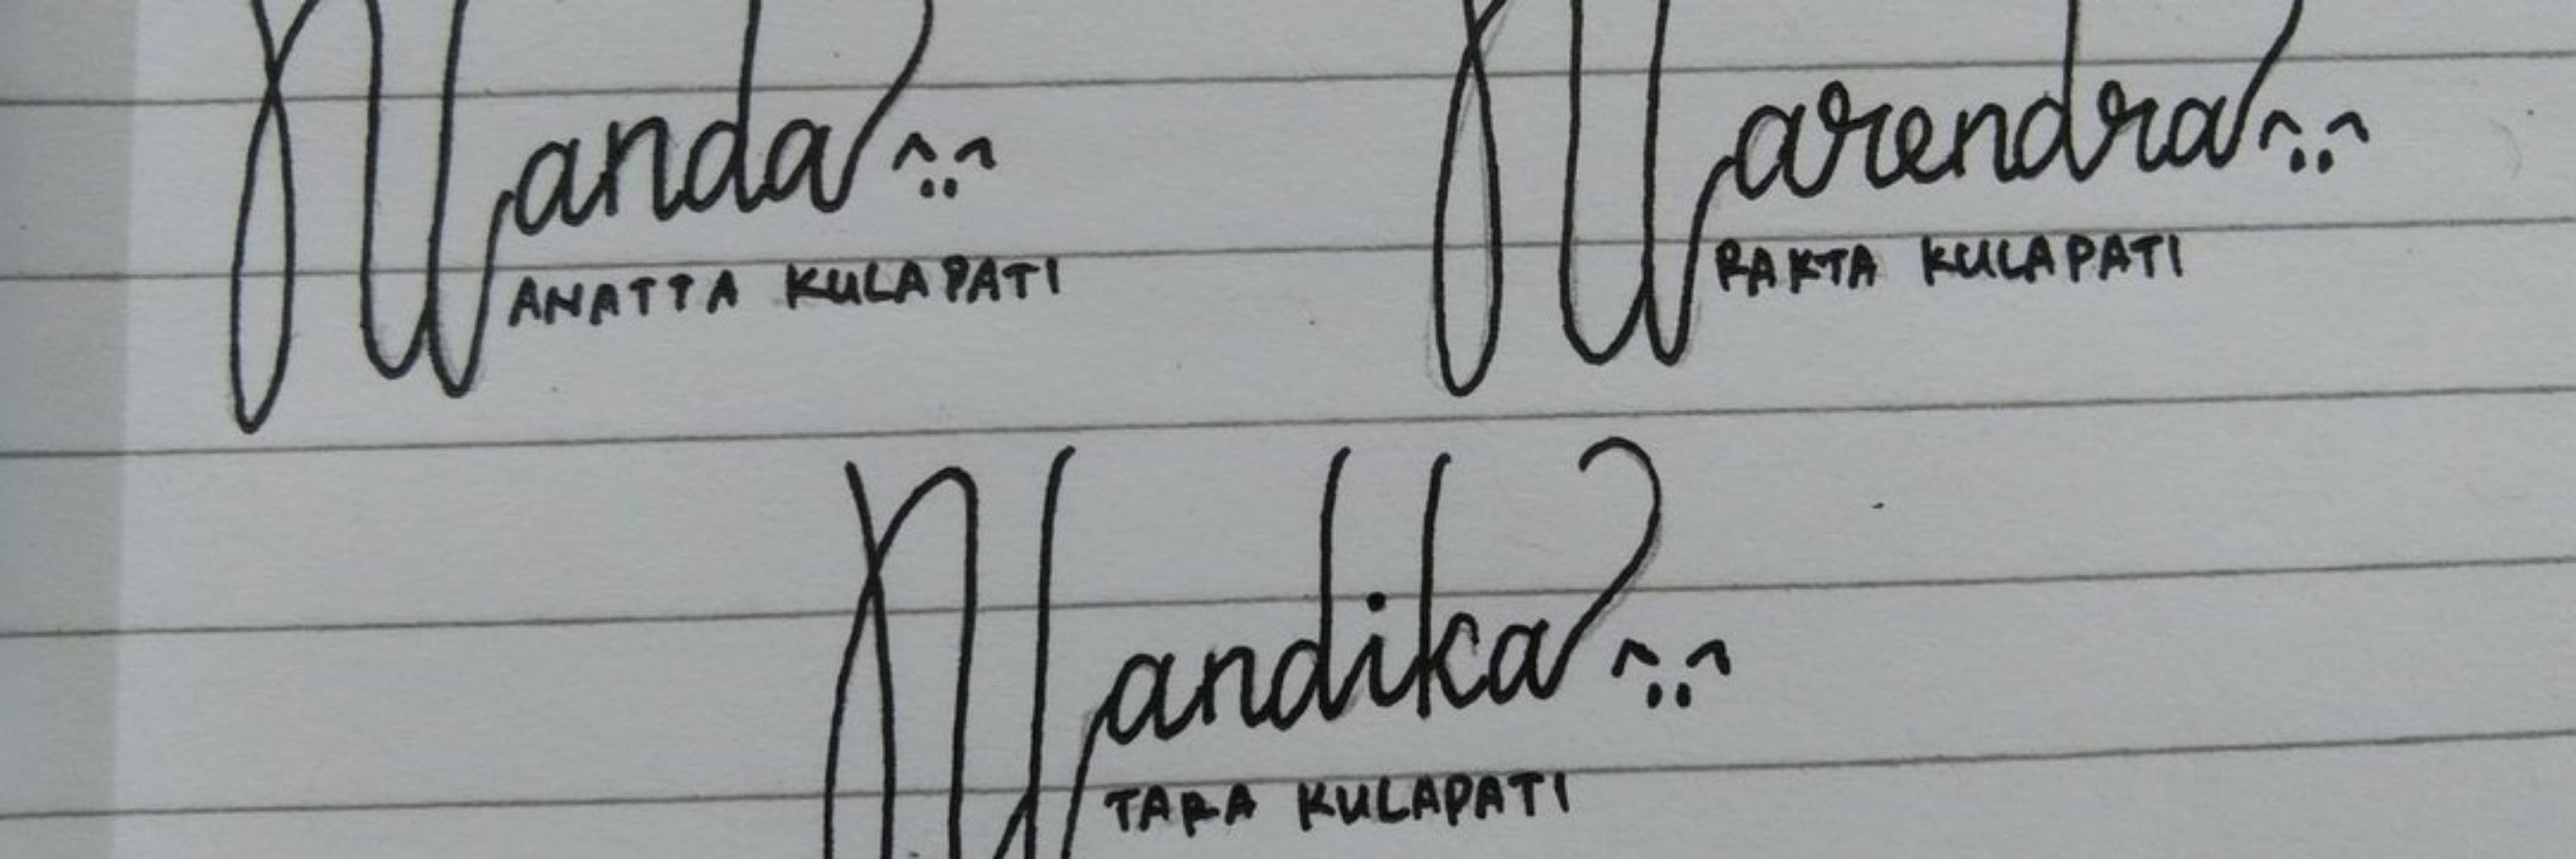 Nanda
ANATTA KULAPATI
Narendra
RAKTA KULAPATI
Nandika
TARA KULAPATI